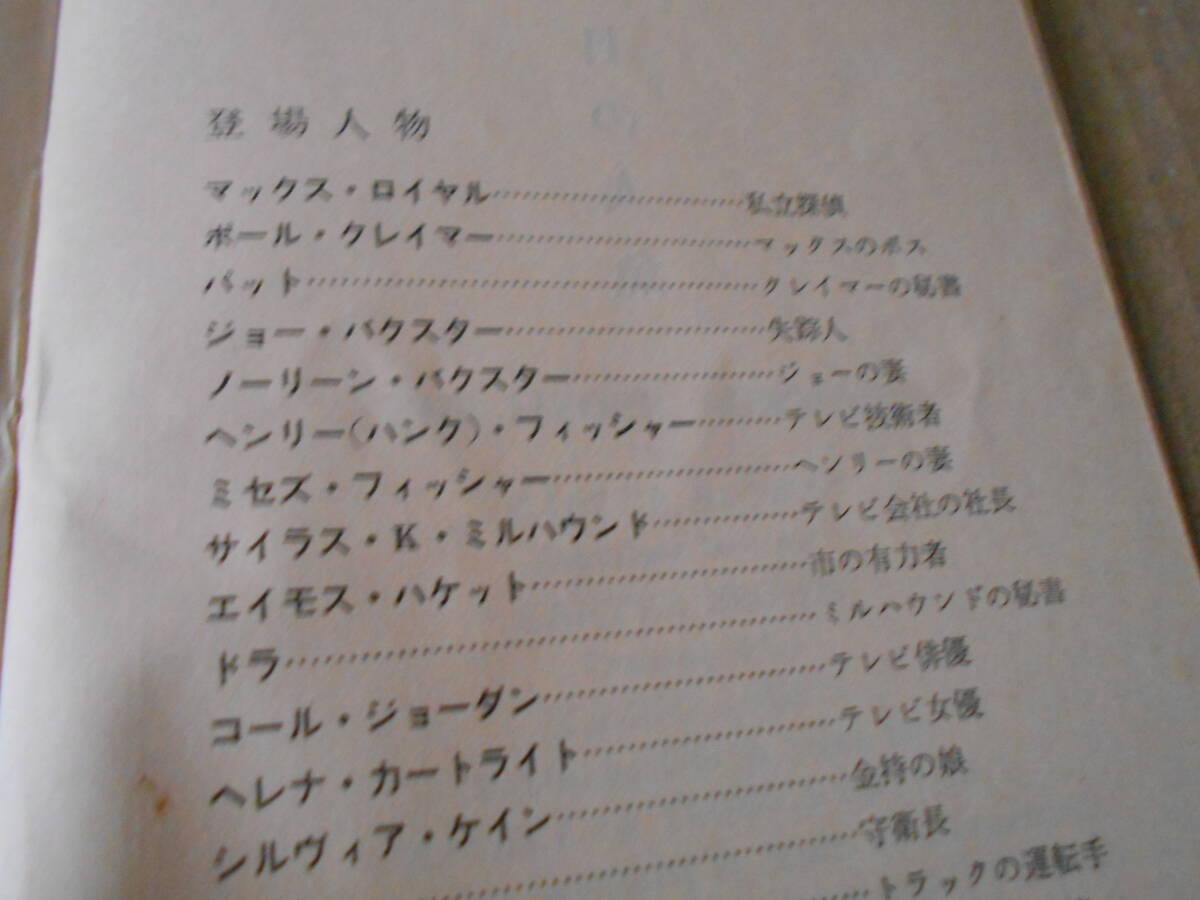 登場人物
マックス・ロイヤル……………………私立探偵
ポール・クレイマー……………………マックスのボス
パット……………………………………クレイマーの秘書
ジョー・バクスター……………………失踪人
ノーリーン・バクスター………………ジョーの妻
ヘンリー(ハンク)・フィッシャー………テレビ技術者
ミセズ・フィッシャー…………………ヘンリーの妻
サイラス・K・ミルハウンド……………テレビ会社の社長
エイモス・ハケット……………………市の有力者
ドラ………………………………………ミルハウンドの秘書
コール・ジョーダン……………………テレビ俳優
ヘレナ・カートライト…………………テレビ女優
シルヴィア・ケイン……………………金持の娘
……………………守衛長
……トラックの運転手